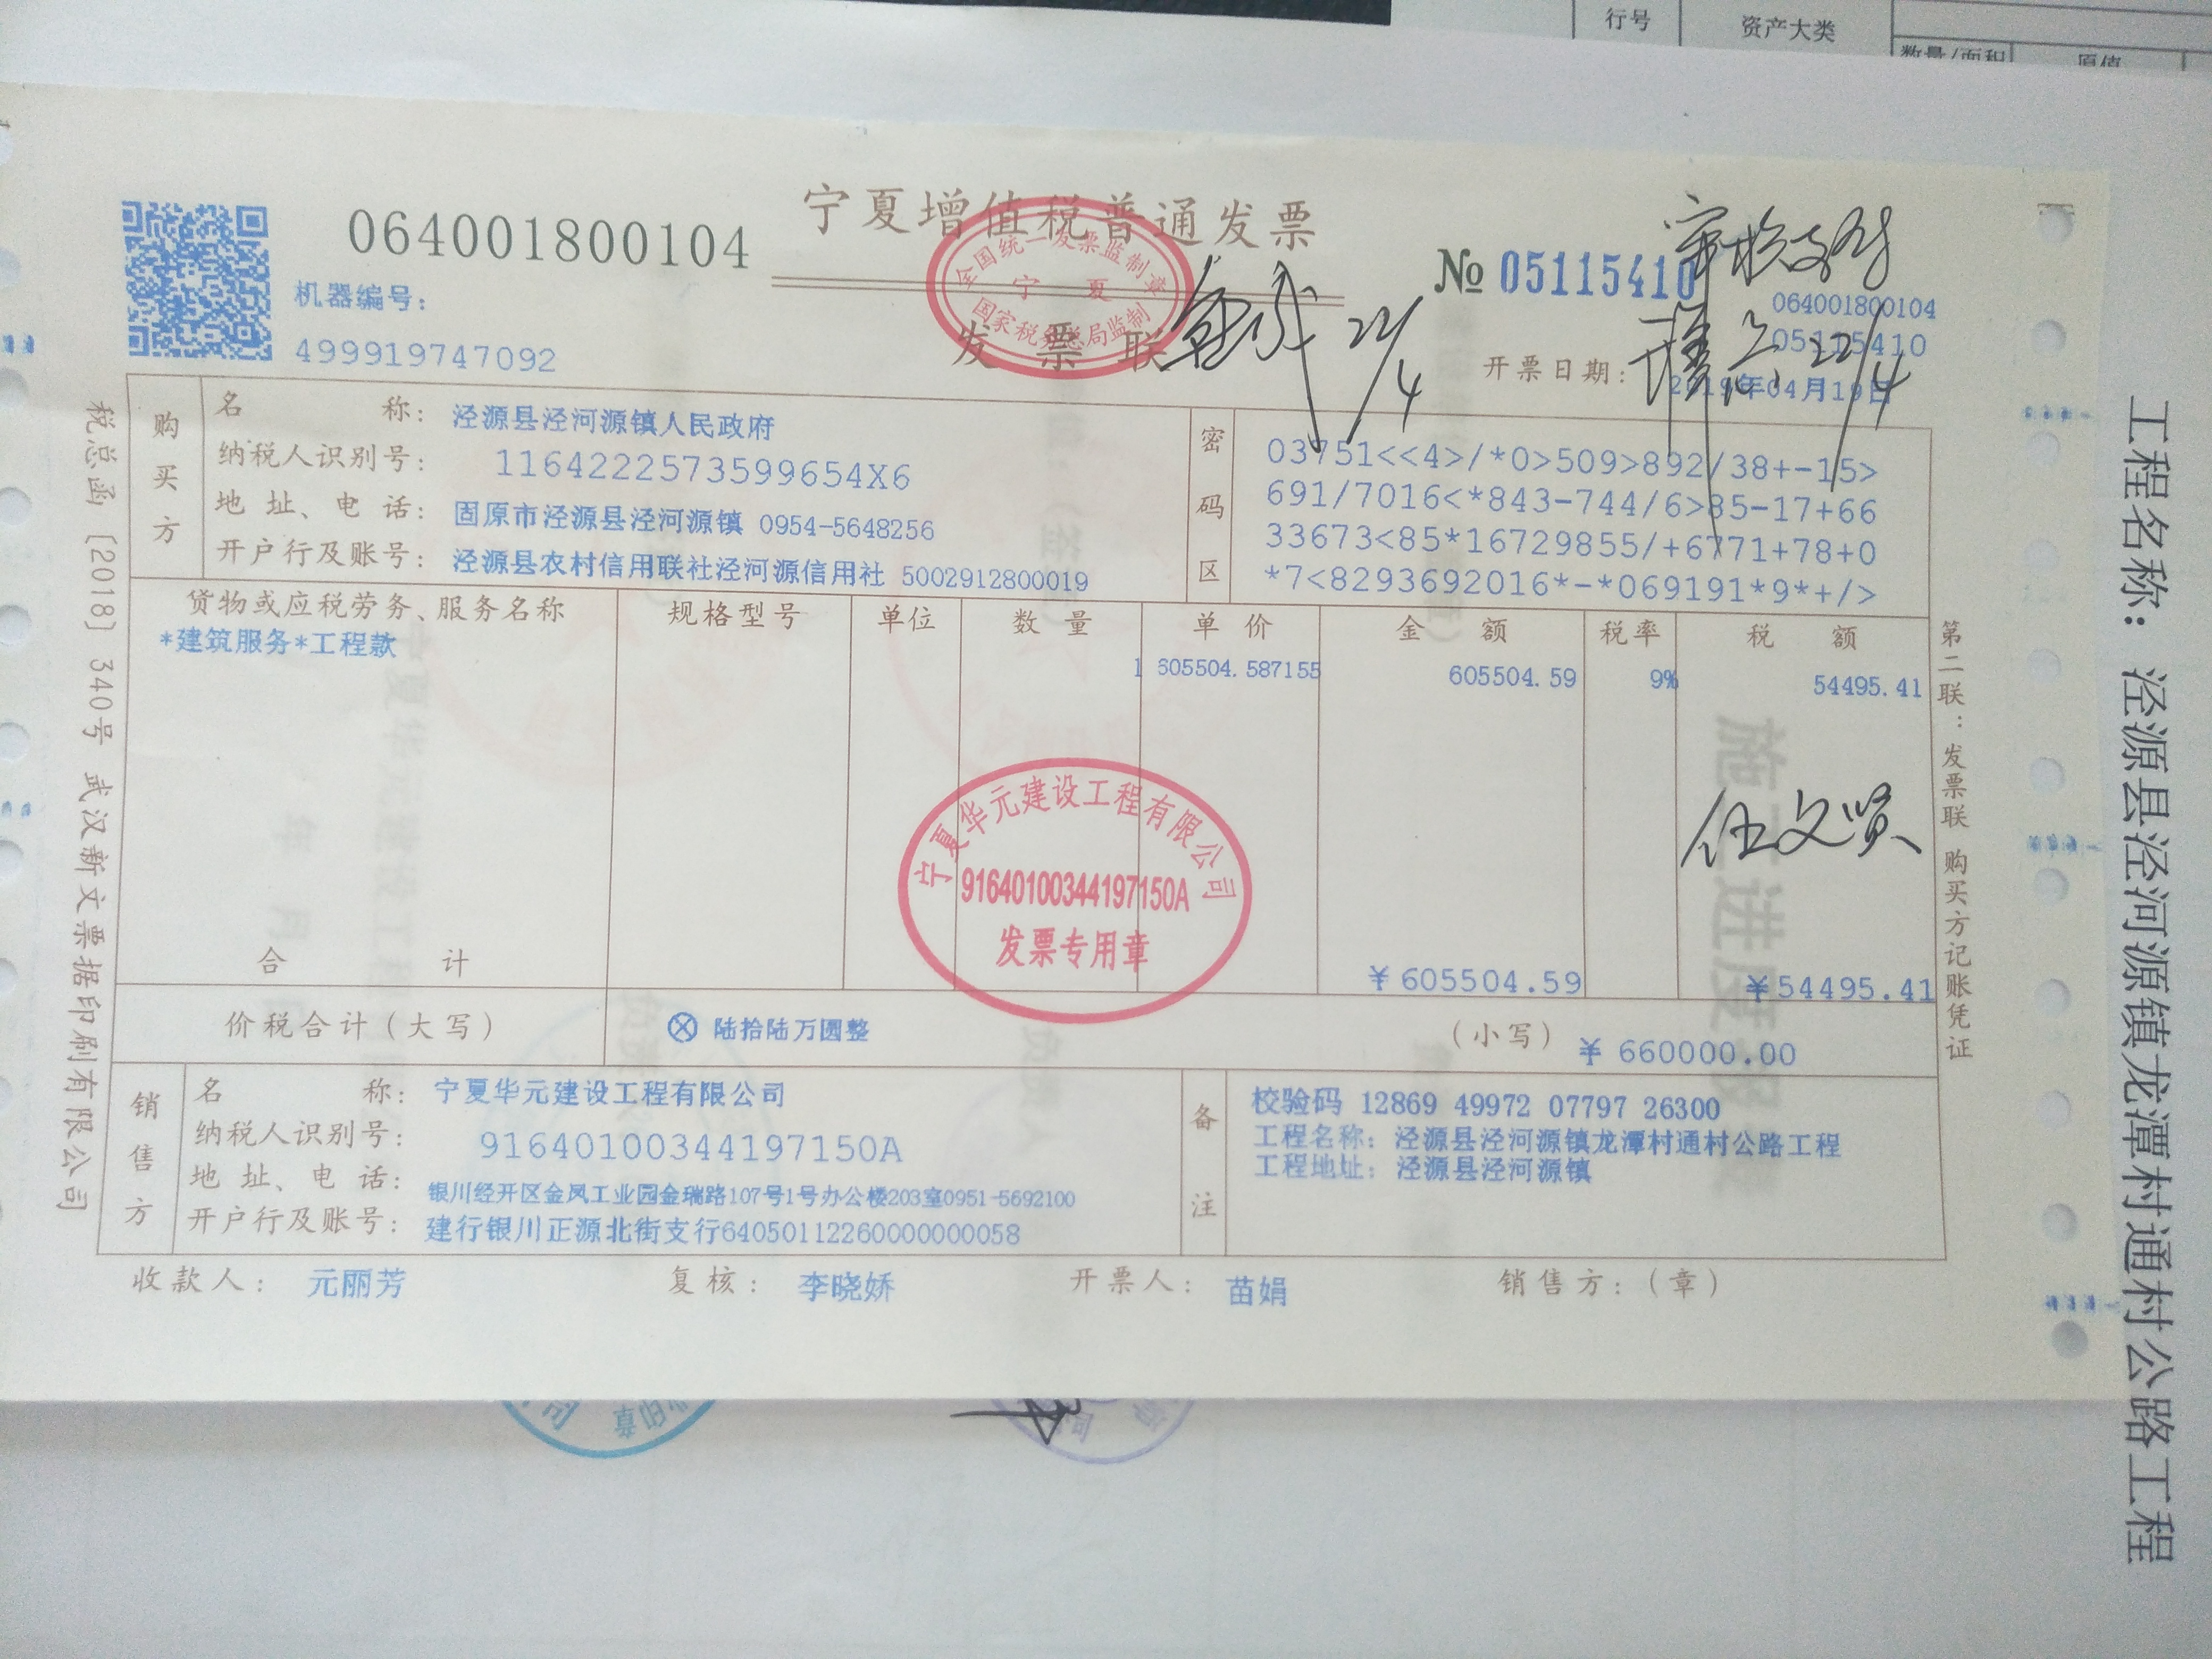 行号
资产大类
数量/面积
原值
宁夏增值税普通发票
064001800104
机器编号:
499919747092
全国统一发票监制章
宁 夏
国家税务总局监制
发票联
№ 05115410
审核支付
064001800104
05115410
22/4
22/4
开票日期: 2019年04月19日
购买方
名 称: 泾源县泾河源镇人民政府
纳税人识别号: 1164222573599654X6
地 址、电 话: 固原市泾源县泾河源镇 0954-5648256
开户行及账号: 泾源县农村信用联社泾河源信用社 5002912800019
密码区
03751<<4>/*0>509>892/38+-15>
691/7016<*843-744/6>85-17+66
33673<85*16729855/+6771+78+0
*7<8293692016*-*069191*9*+/>
货物或应税劳务、服务名称 规格型号 单位 数 量 单 价 金 额 税率 税 额
*建筑服务*工程款 1 605504.587155 605504.59 9% 54495.41
伍文贤
宁夏华元建设工程有限公司
91640100344197150A
发票专用章
合 计 ¥605504.59 ¥54495.41
价税合计(大写) ⊗ 陆拾陆万圆整 (小写) ¥ 660000.00
销售方
名 称: 宁夏华元建设工程有限公司
纳税人识别号: 91640100344197150A
地 址、电 话: 银川经开区金凤工业园金瑞路107号1号办公楼203室0951-5692100
开户行及账号: 建行银川正源北街支行64050112260000000058
备注
校验码 12869 49972 07797 26300
工程名称: 泾源县泾河源镇龙潭村通村公路工程
工程地址: 泾源县泾河源镇
收款人: 元丽芳 复核: 李晓娇 开票人: 苗娟 销售方:(章)
税总函 [2018] 340号 武汉新文票据印刷有限公司
第二联:发票联 购买方记账凭证
工程名称: 泾源县泾河源镇龙潭村通村公路工程